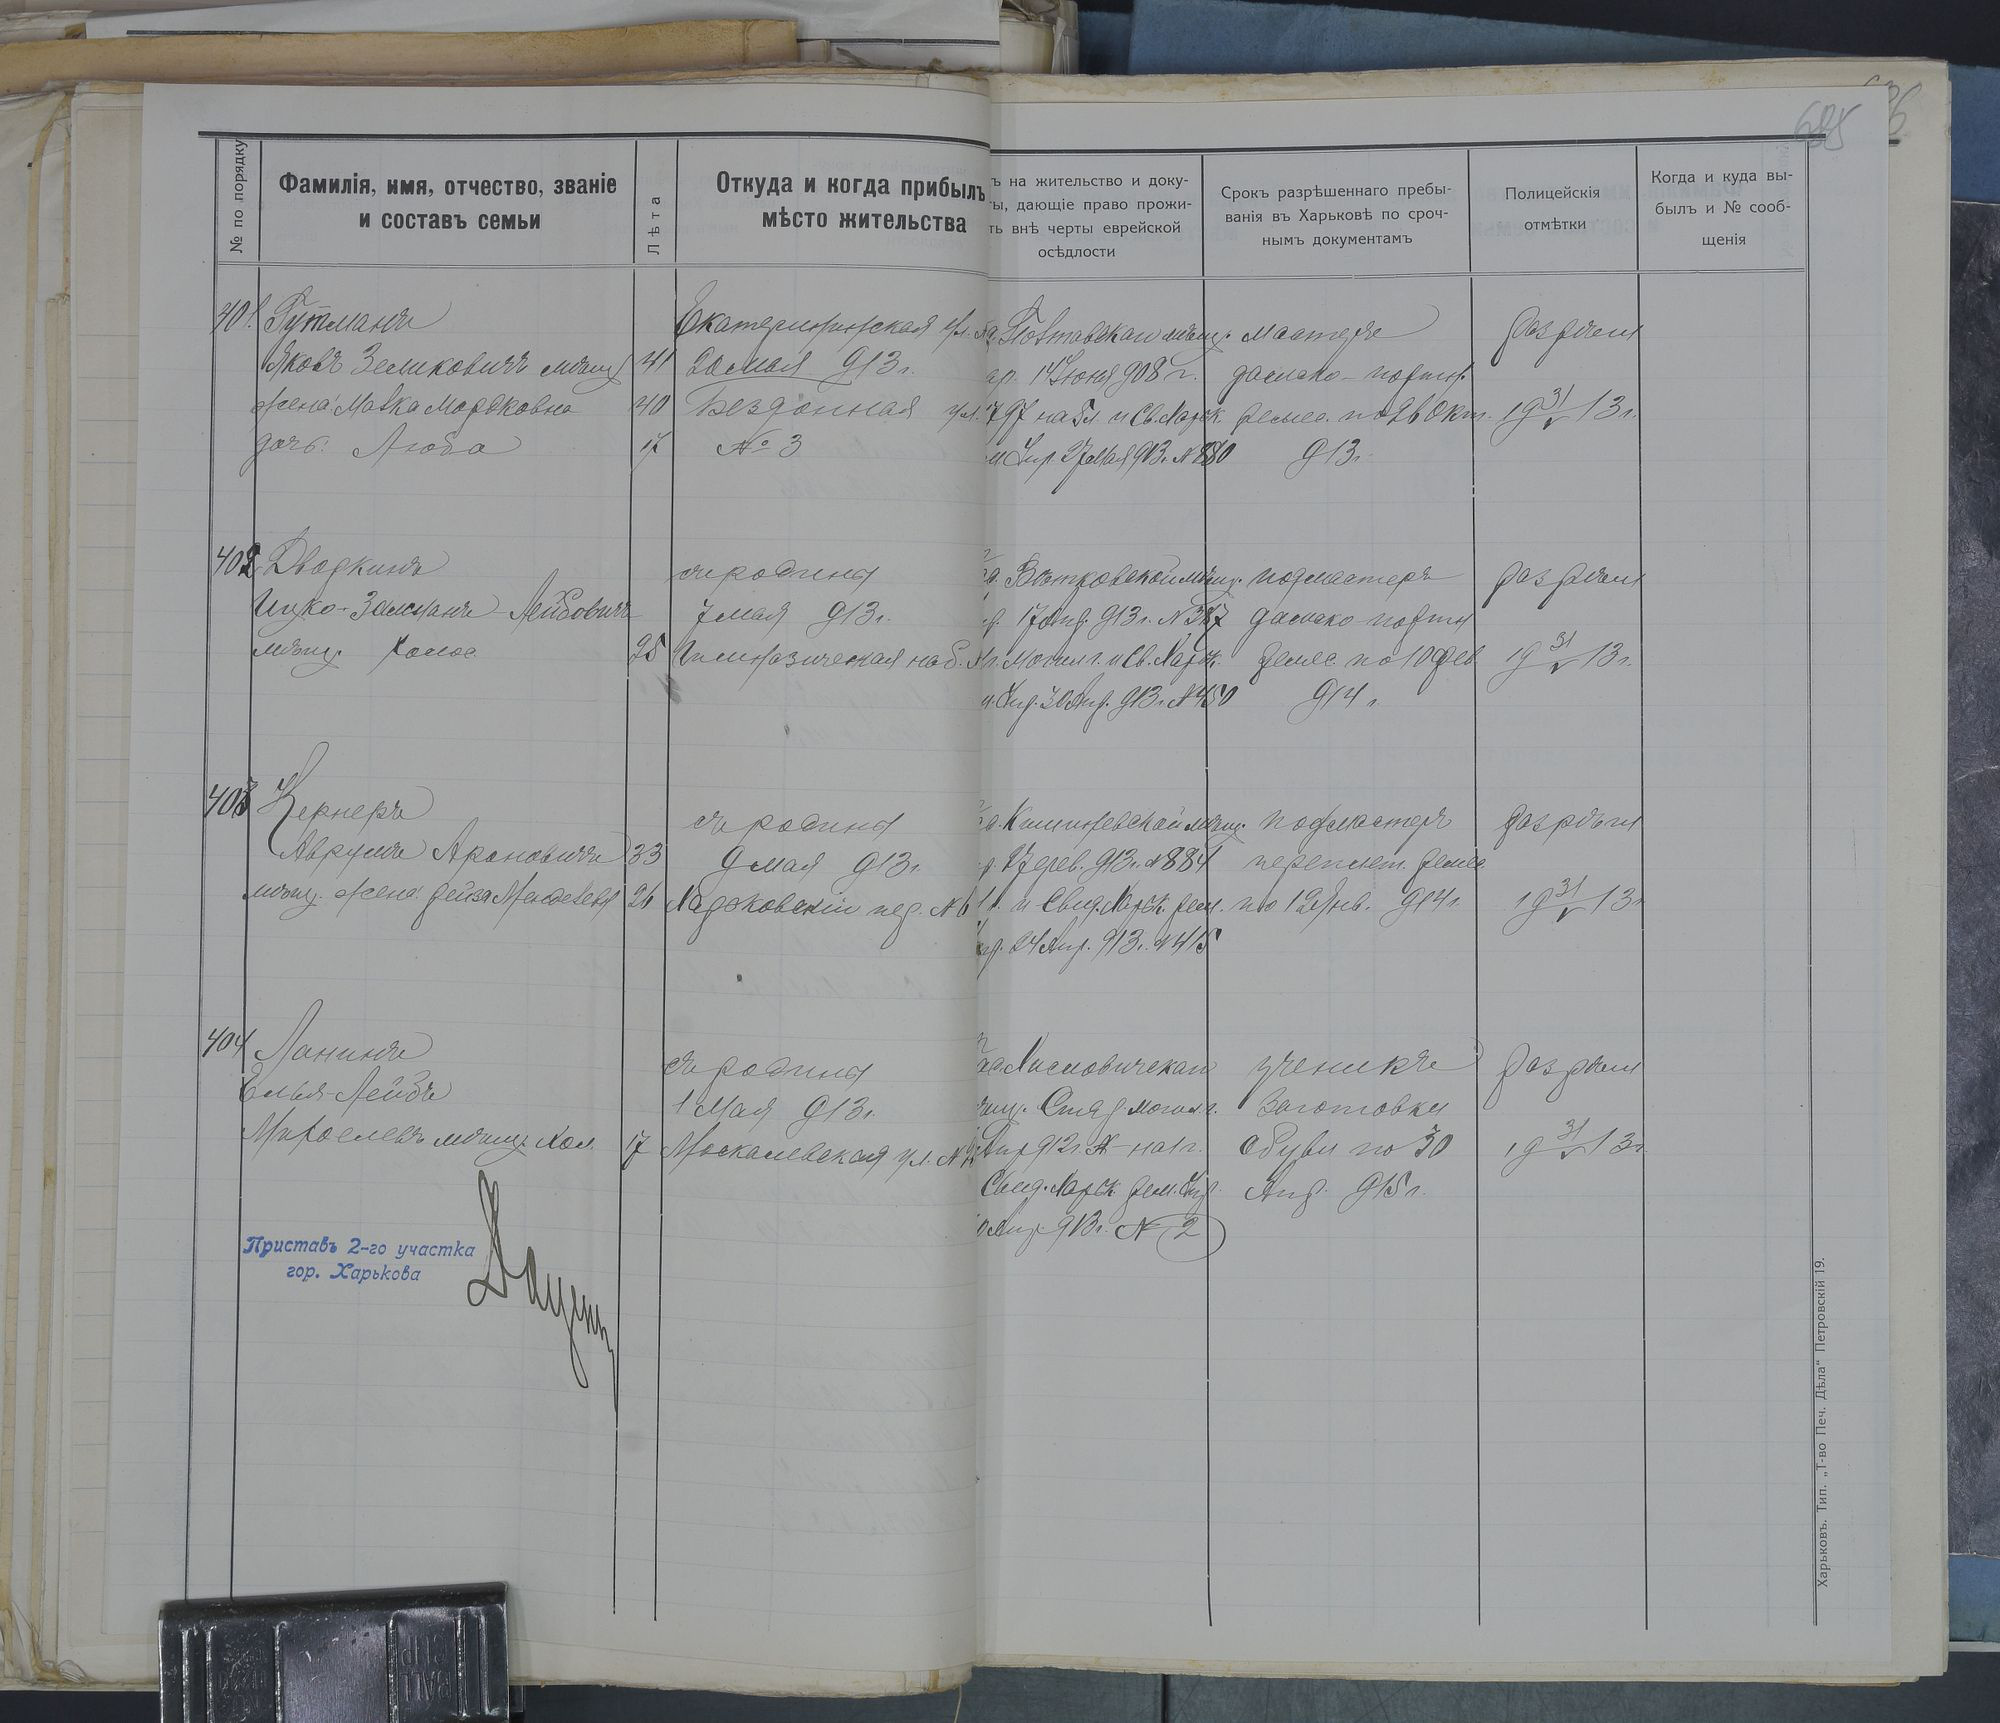 685
№ по порядку
Фамилія, имя, отчество, званіе
и составъ семьи
Лѣта
Откуда и когда прибылъ
мѣсто жительства
ъ на жительство и доку-
ты, дающіе право прожи-
ть внѣ черты еврейской
осѣдлости
Срокъ разрѣшеннаго пребы-
ванія въ Харьковѣ по сроч-
нымъ документамъ
Полицейскія
отмѣтки
Когда и куда вы-
былъ и № сооб-
щенія
401. Гутманъ
Яковъ Зеликовичъ мѣщ 41
жена: Малка Мордковна 40
дочь: Люба 17
Екатерининская ул.
20 мая 913 г.
Бездонная ул.
№ 3
Полтавская мѣщ.
1 Іюня 908 г.
797 на 5 л. и Св. Харьк.
Упр. 27 мая 913 г. № 880
мастеръ
дамско-портн.
ремес. по 26 Окт.
913 г.
разрѣш
19 31/V 13 г.
402 Дворкинъ
Ицко-Залманъ Лейбовичъ
мѣщ. холос. 25
съ родины
7 мая 913 г.
Гимназическая наб.
Вѣтровской мѣщ.
17 Апр. 913 г. № 387
Могил г. и Св. Харьк.
Упр. 30 Апр. 913 г. № 450
подмастеръ
дамско-портн
ремес. по 10 фев.
914 г.
разрѣш
19 31/V 13 г.
403 Кернеръ
Аврумъ Ароновичъ 33
мѣщ. жена: Рейза Менделевна 26
съ родины
9 мая 913 г.
Харьковскій пер. № 6
Кишиневской мѣщ.
27 фев. 913 г. № 884
и Свид. Харьк. рем.
Упр. 24 Апр. 913 г. № 415
подмастеръ
переплет. ремес
по 12 Янв. 914 г.
разрѣш
19 31/V 13 г
404 Ланинъ
Елья-Лейбъ
мѣщ. Хол. 17
съ родины
1 Мая 913 г.
Москалевская ул. №
Хиславичская
мѣщ. Стар. могил. г.
Апр 912 г. № на 1 г.
Свид. Харьк. рем. Упр.
Апр. 913 г. № 2
ученикъ
заготовки
обуви по 30
Апр. 915 г.
разрѣш
19 31/V 13 г
Приставъ 2-го участка
гор. Харькова
Харьковъ. Тип. „Т-во Печ. Дѣла“ Петровскій 19.